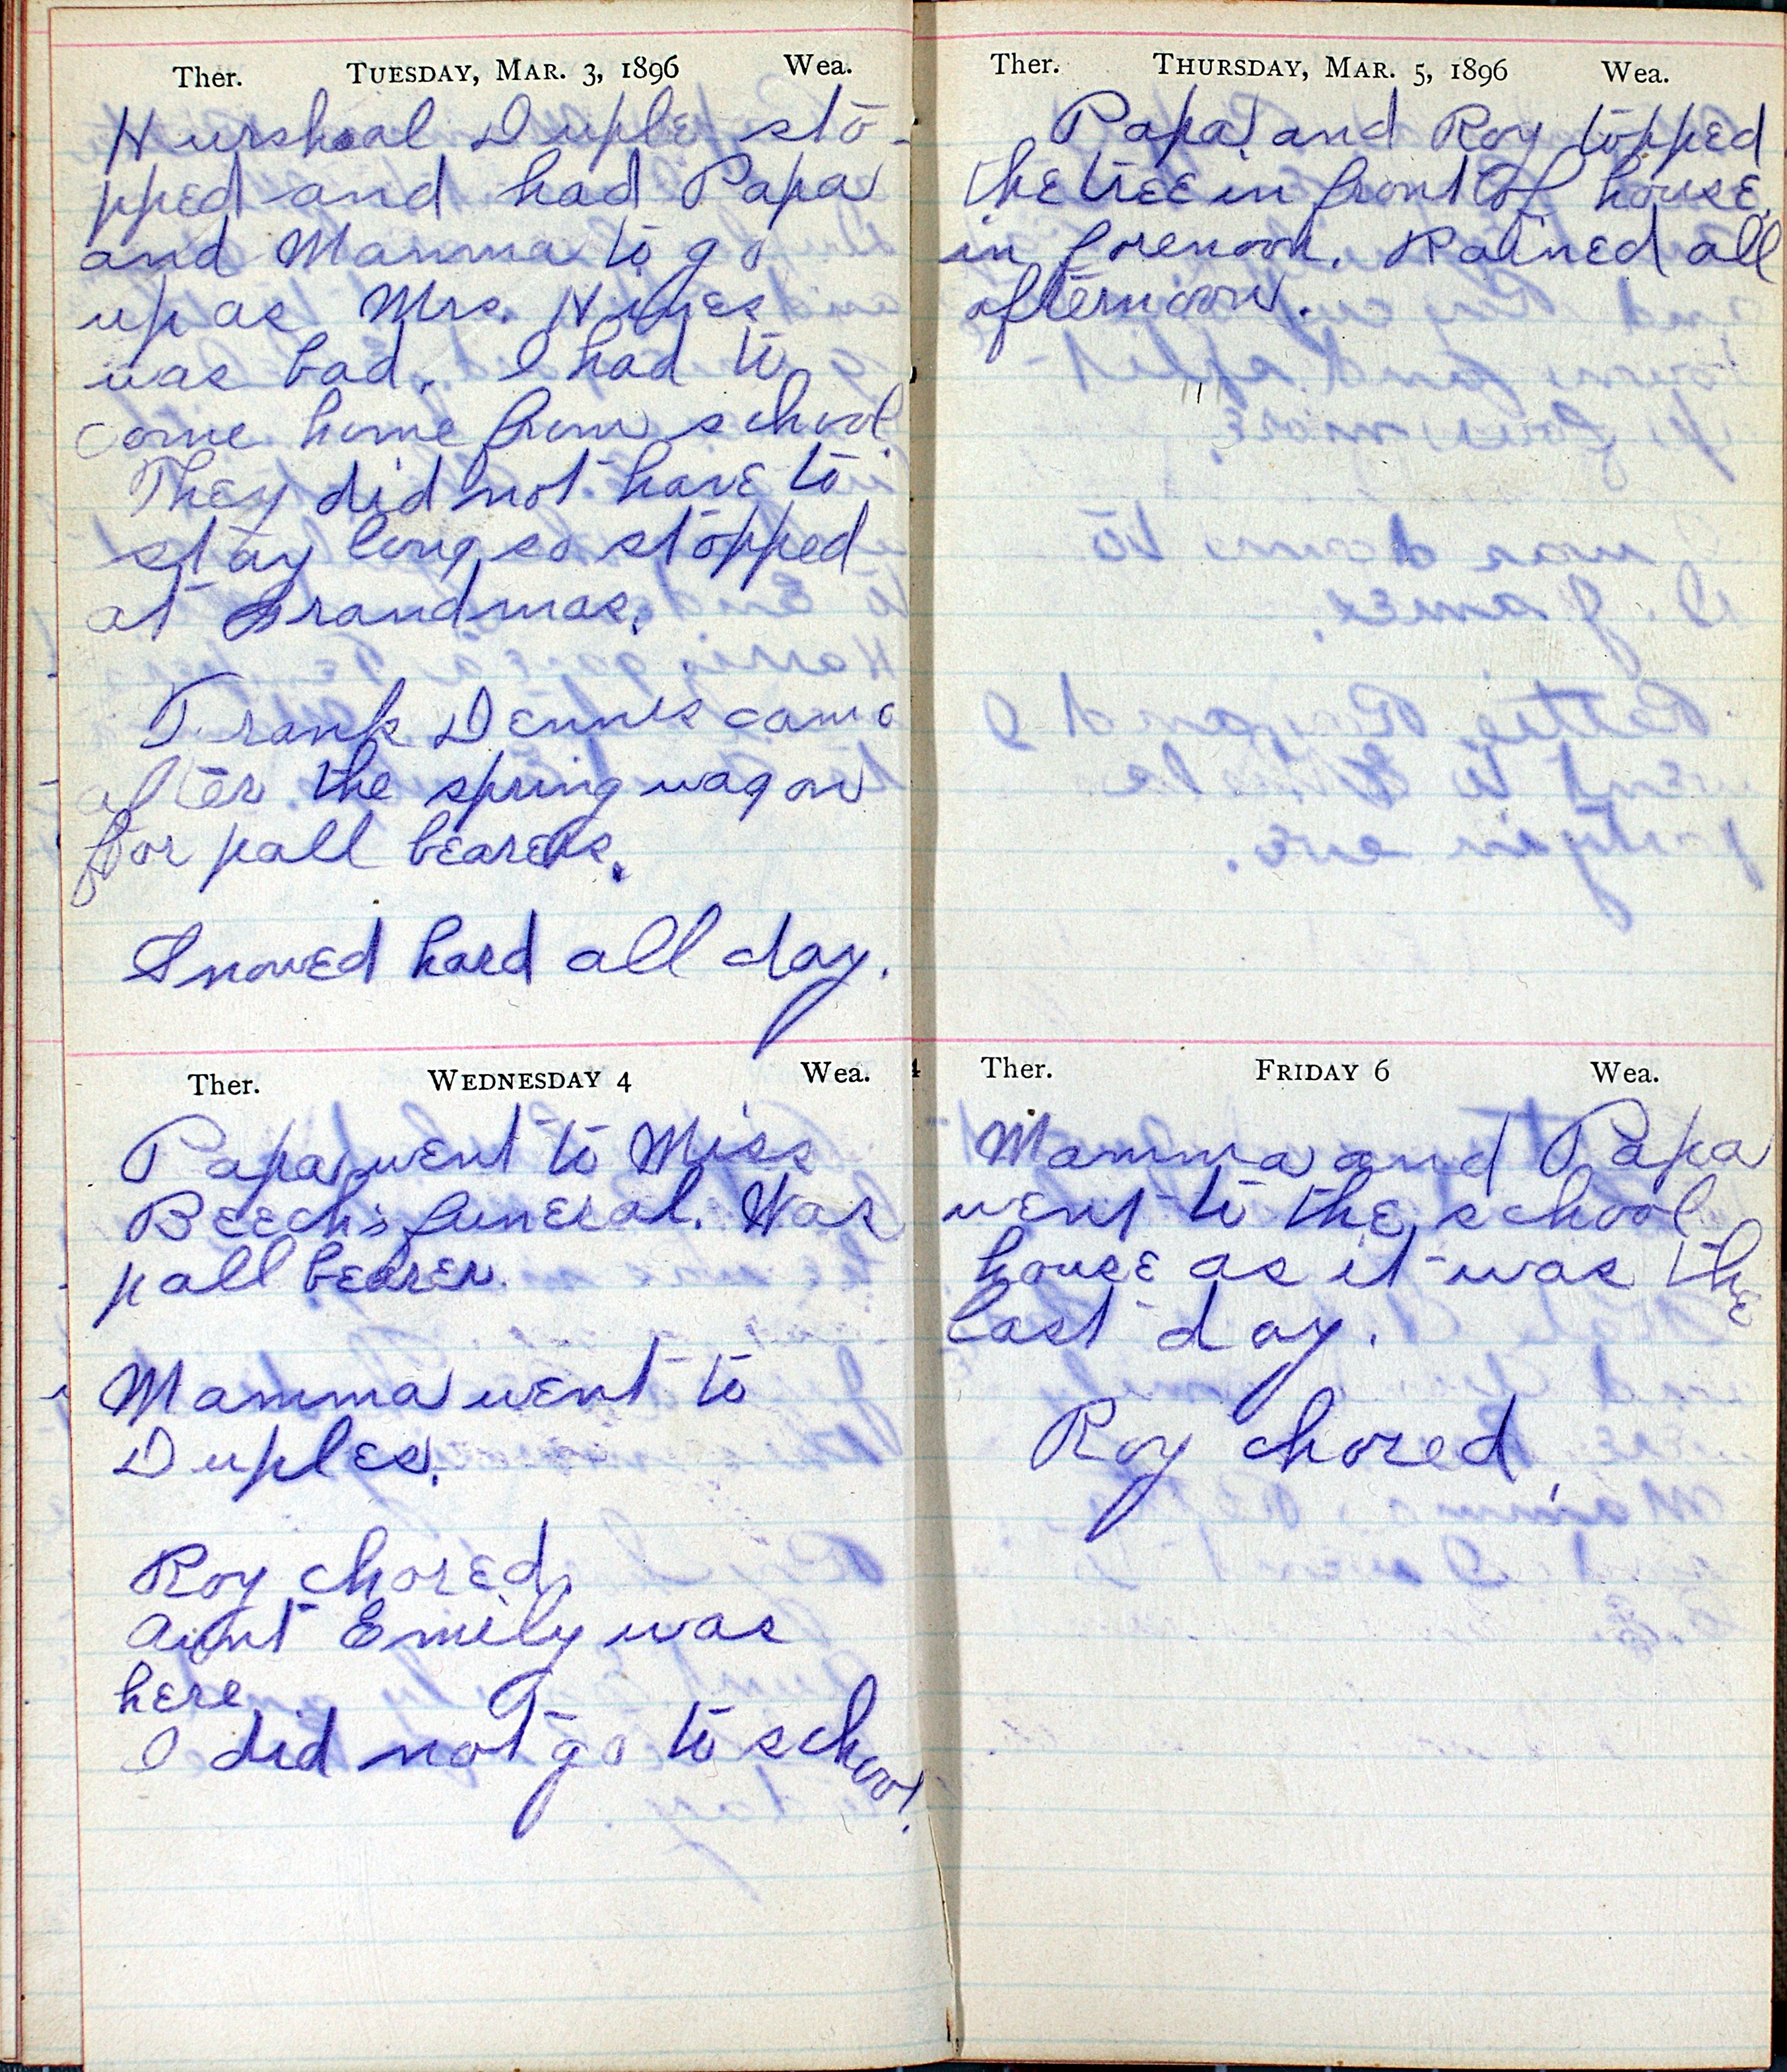 Ther. TUESDAY, MAR. 3, 1896 Wea.
Hurshal Duple sto-
pped and had Papa
and Mamma to go
up as Mrs. Hines
was bad. I had to
come home from school.
They did not have to
stay long so stopped
at Grandmas.
Frank Dennis came
after the spring wagon
for pall bearers.
Snowed hard all day.
Ther. WEDNESDAY 4 Wea.
Papa went to Miss
Beech's funeral. Was
pall bearer.
Mamma went to
Duples.
Roy chored.
Aunt Emily was
here
I did not go to school.
Ther. THURSDAY, MAR. 5, 1896 Wea.
Papa and Roy topped
the tree in front of house
in forenoon. Rained all
afternoon.
Ther. FRIDAY 6 Wea.
Mamma and Papa
went to the school
house as it was the
last day.
Roy chored.